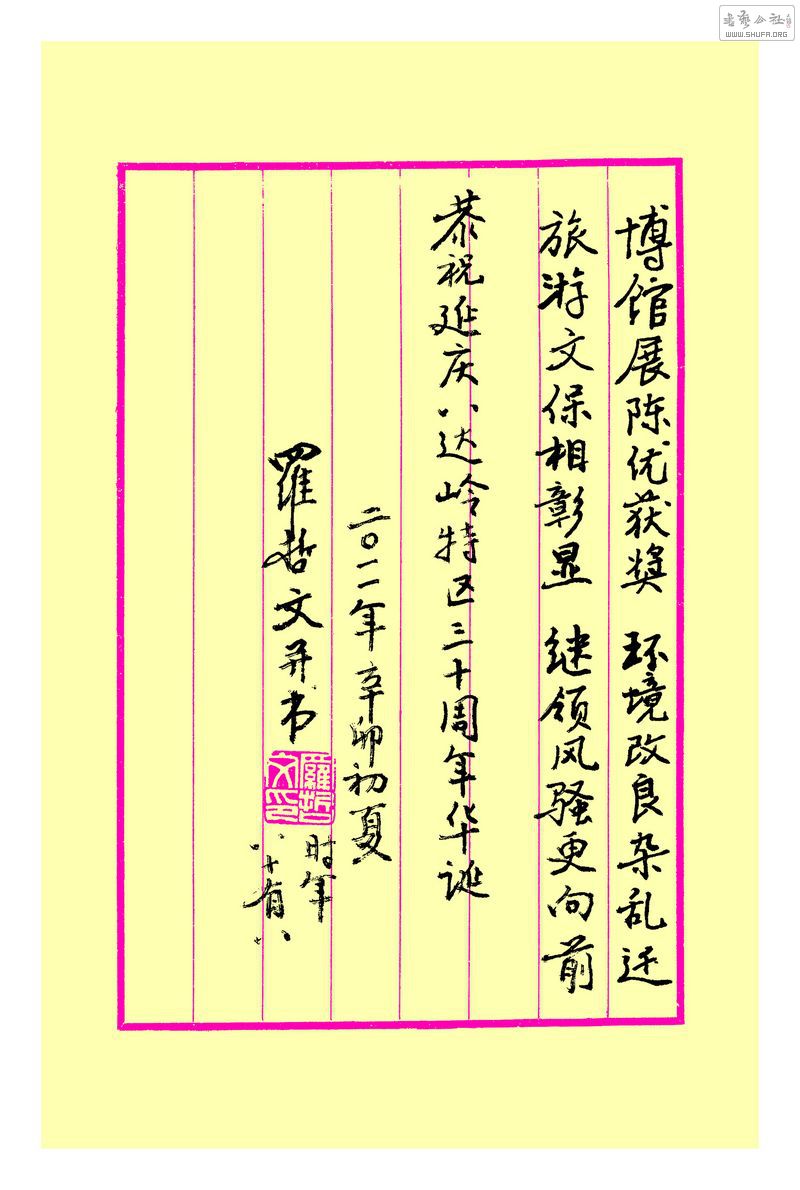 博馆展陈优获奖 环境改良杂乱迁
旅游文保相彰显 继领风骚更向前
恭祝延庆八达岭特区三十周年华诞
二〇一一年辛卯初夏
羅哲文并书
羅哲文印
时年
八十有八
书艺公社
WWW.SHUFA.ORG